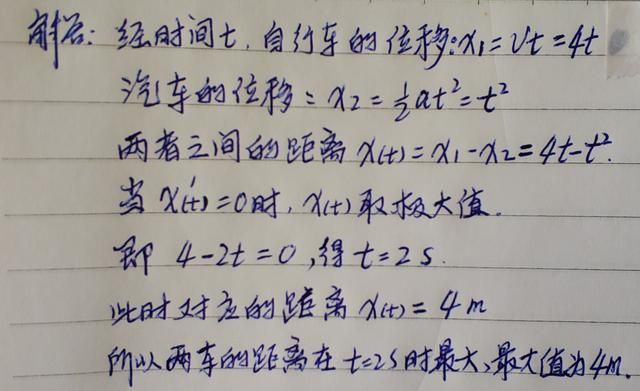 解答: 经时间t,自行车的位移:x₁=vt=4t
汽车的位移:x₂=½at²=t²
两者之间的距离x(t)=x₁-x₂=4t-t².
当x'(t)=0时,x(t)取极大值.
即 4-2t=0,得t=2s.
此时对应的距离x(t)=4m
所以两车的距离在t=2s时最大,最大值为4m.